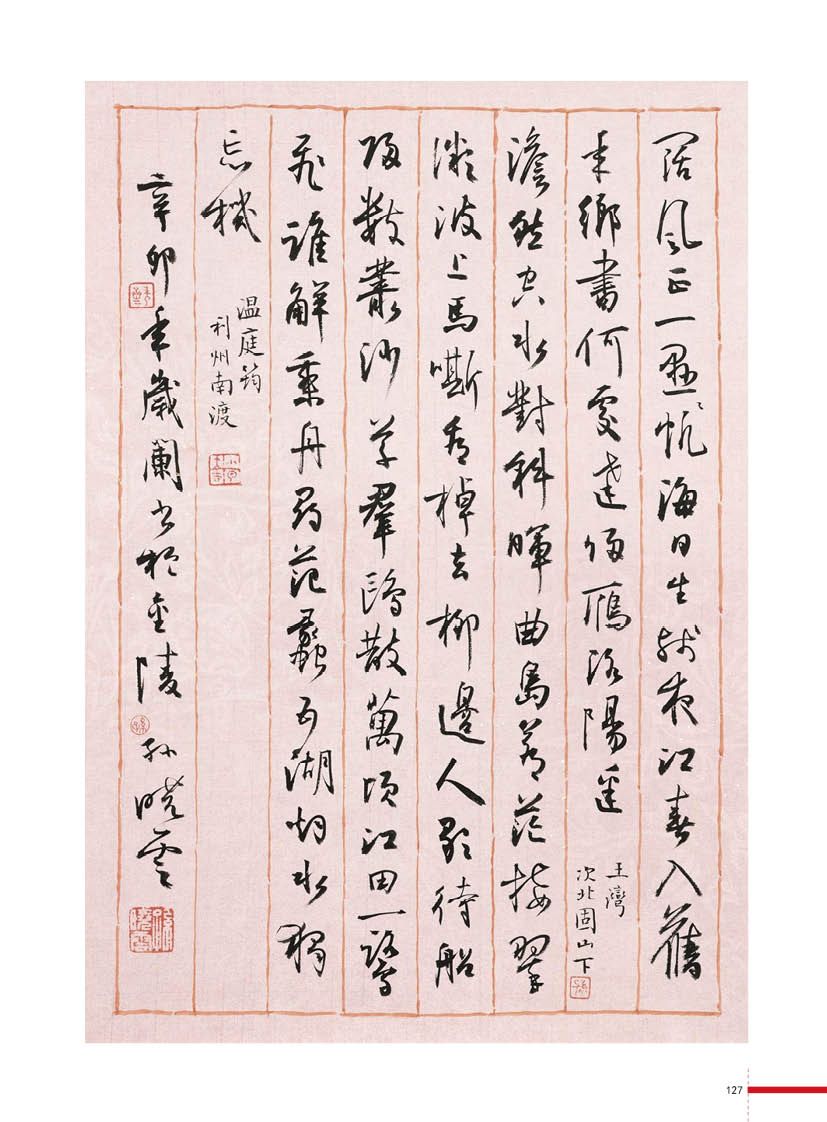 闊風正一懸帆海日生殘夜江春入舊
年鄉書何處達歸雁洛陽邊
王灣
次北固山下
澹然空水對斜暉曲島蒼茫接翠
微波上馬嘶看棹去柳邊人歇待船
歸數叢沙草羣鷗散萬頃江田一鷺
飛誰解乘舟尋范蠡五湖烟水獨
忘機
温庭筠
利州南渡
辛卯年歲闌書於金陵孙曉雲
127